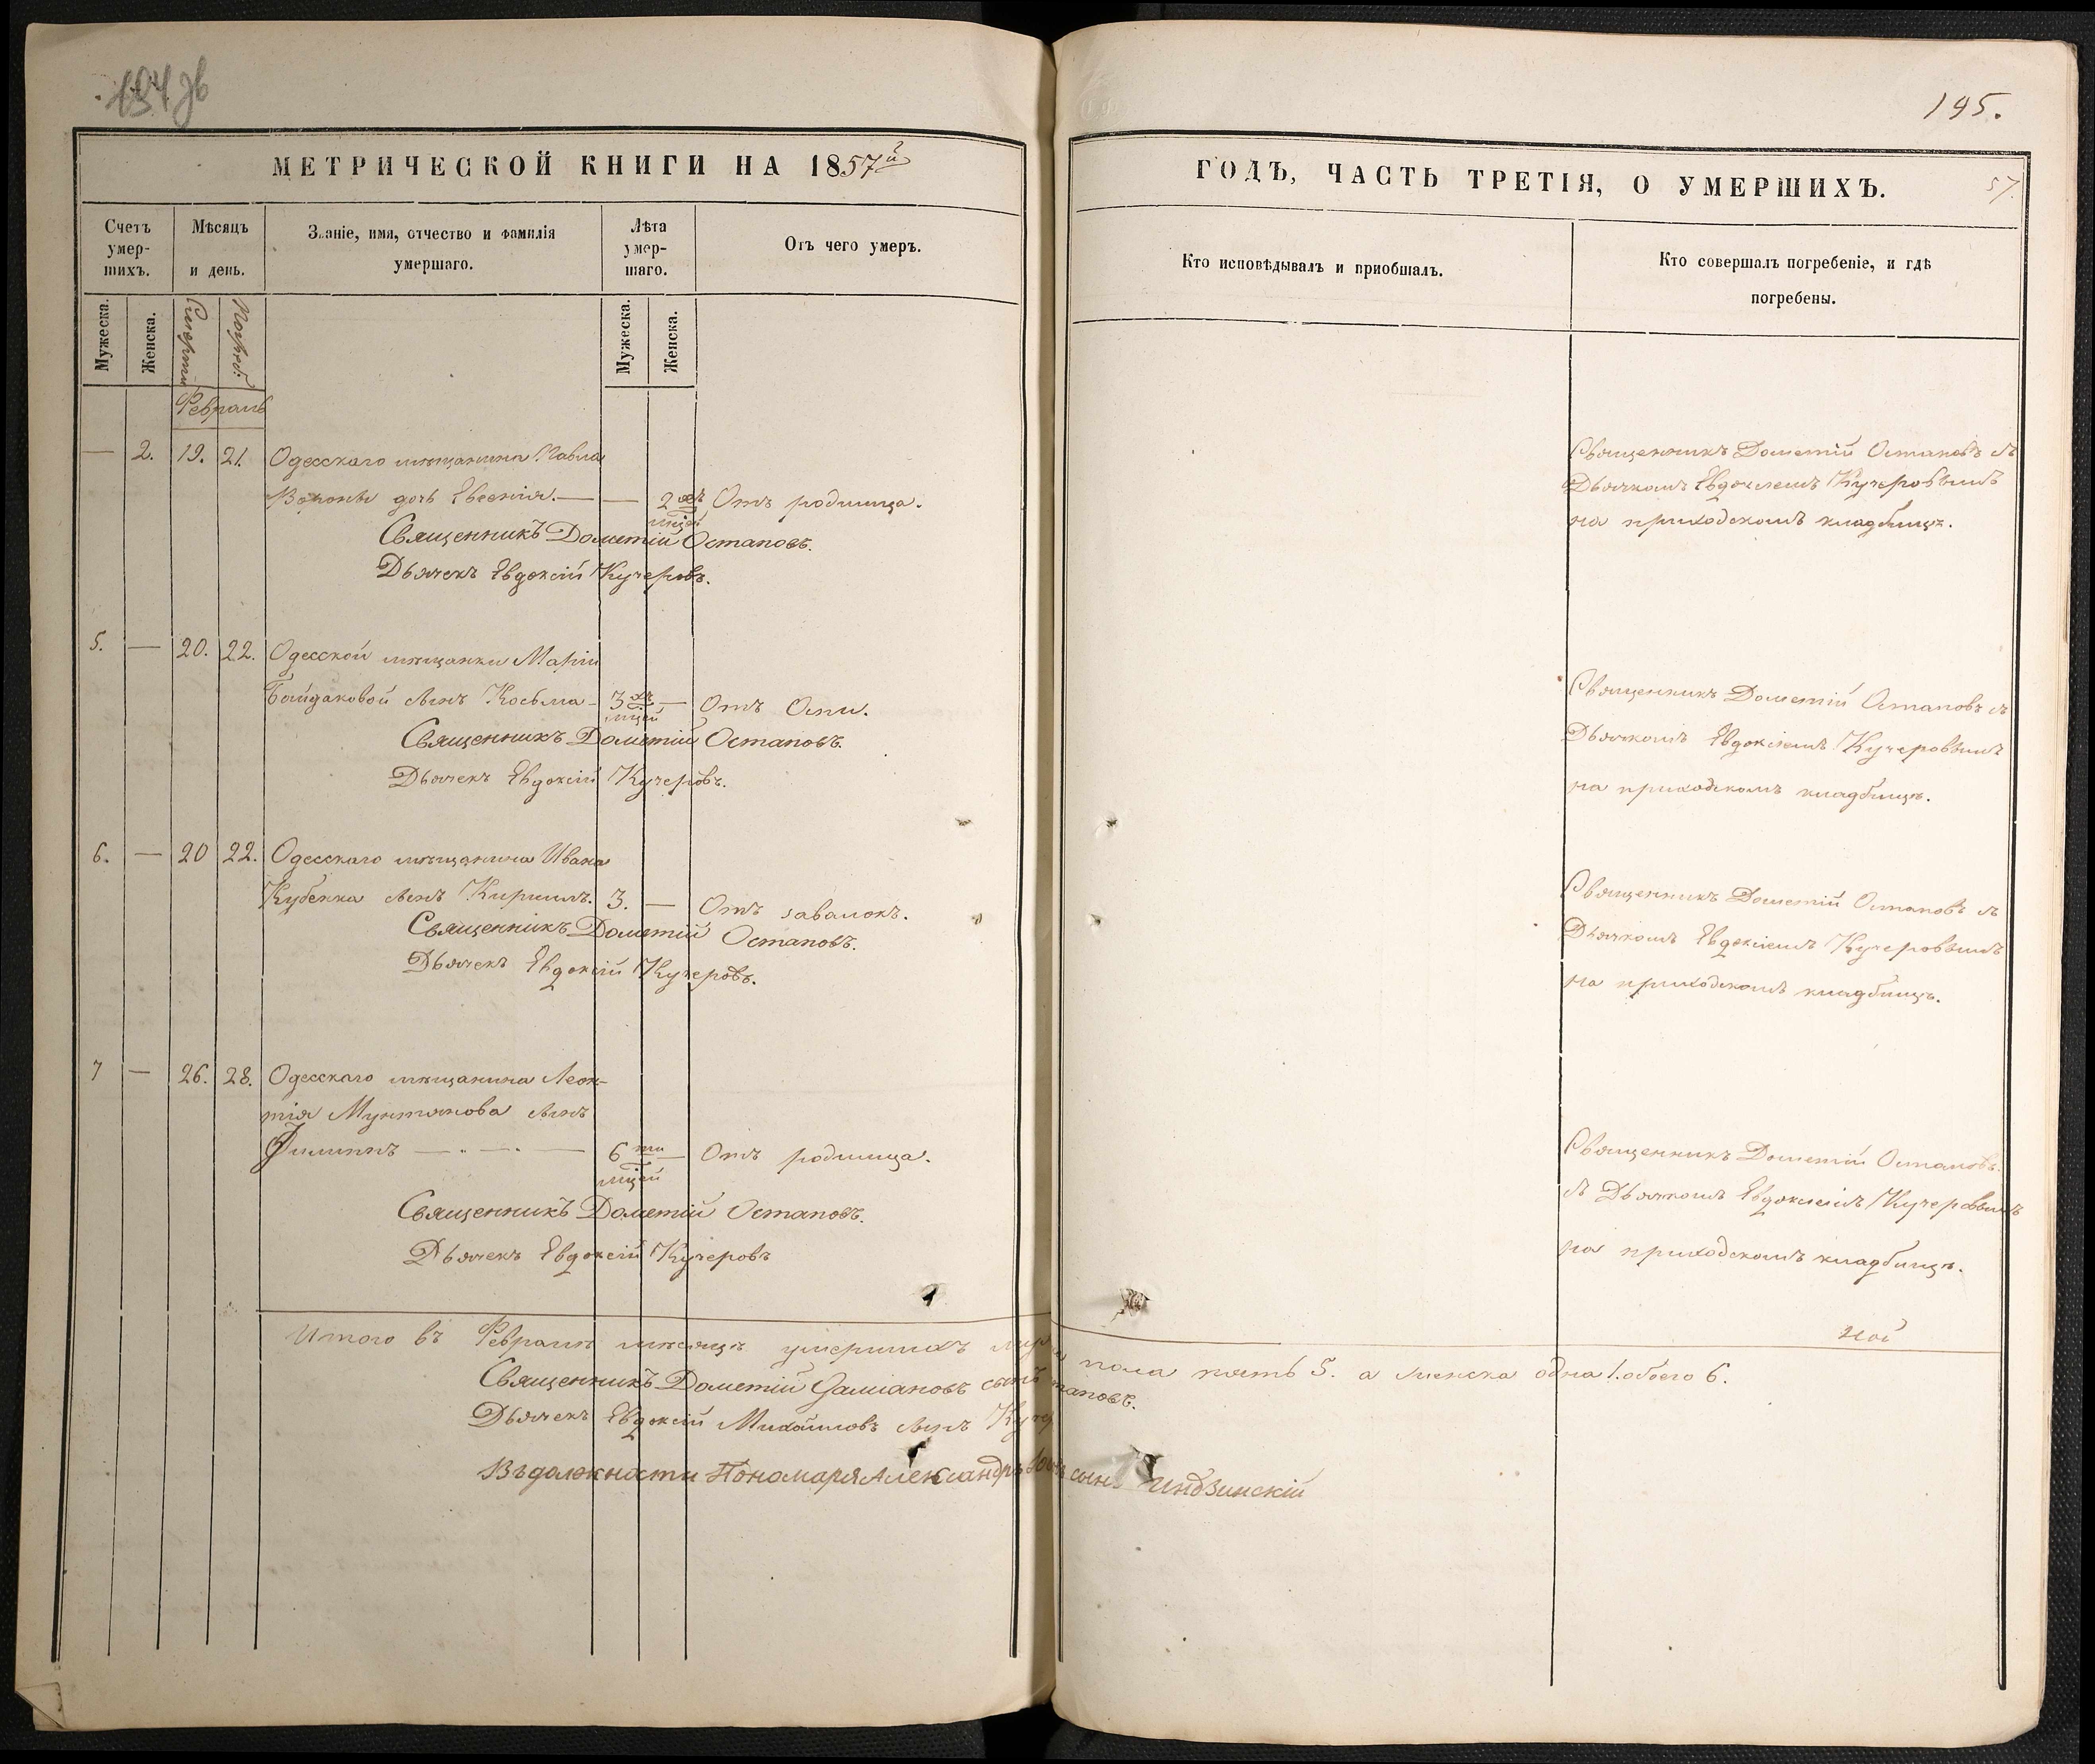 194 об
195.
МЕТРИЧЕСКОЙ КНИГИ НА 1857й
ГОДЪ, ЧАСТЬ ТРЕТІЯ, О УМЕРШИХЪ.
57.
Счетъ умер-шихъ.
Мѣсяцъ и день.
Званіе, имя, отчество и фамилія умершаго.
Лѣта умер-шаго.
Отъ чего умеръ.
Кто исповѣдывалъ и приобщалъ.
Кто совершалъ погребеніе, и гдѣ погребены.
Мужеска.
Женска.
Смерти
Погреб:
Мужеска.
Женска.
Февраль
— 2. 19. 21. Одесскаго мѣщанина Павла
Вороны дочь Евгенія. — — 2хъ мцей Отъ родимца.
Священникъ Дометій Остаповъ.
Дьячекъ Евдокій Кучеровъ.
Священникъ Дометій Остаповъ съ
Дьячкомъ Евдокіемъ Кучеровымъ
на приходскомъ кладбищѣ.
5. — 20. 22. Одесской мѣщанки Маріи
Байдаковой сынъ Косьма - 3хъ мцей — Отъ Оспи.
Священникъ Дометій Остаповъ.
Дьячекъ Евдокій Кучеровъ.
Священникъ Дометій Остаповъ съ
Дьячкомъ Евдокіемъ Кучеровымъ
на приходскомъ кладбищѣ.
6. — 20 22. Одесскаго мѣщанина Ивана
Кубенка сынъ Кириллъ. 3. — Отъ завалокъ.
Священникъ Дометій Остаповъ.
Дьячекъ Евдокій Кучеровъ.
Священникъ Дометій Остаповъ съ
Дьячкомъ Евдокіемъ Кучеровымъ
на приходскомъ кладбищѣ.
7 — 26. 28. Одесскаго мѣщанина Леон-
тія Мунтянова сынъ
Филиппъ — 6ти мцей — Отъ родимца.
Священникъ Дометій Остаповъ.
Дьячекъ Евдокій Кучеровъ
Священникъ Дометій Остаповъ.
съ Дьячкомъ Евдокіемъ Кучеровымъ
на приходскомъ кладбищѣ.
Итого въ Февралѣ мѣсяцѣ умершихъ пола пять 5. а женска одна 1. обоего 6.
Священникъ Дометій Даміановъ сынъ
Дьячекъ Евдокій Михайловъ сынъ
Въ должности Пономаря Александръ сынъ